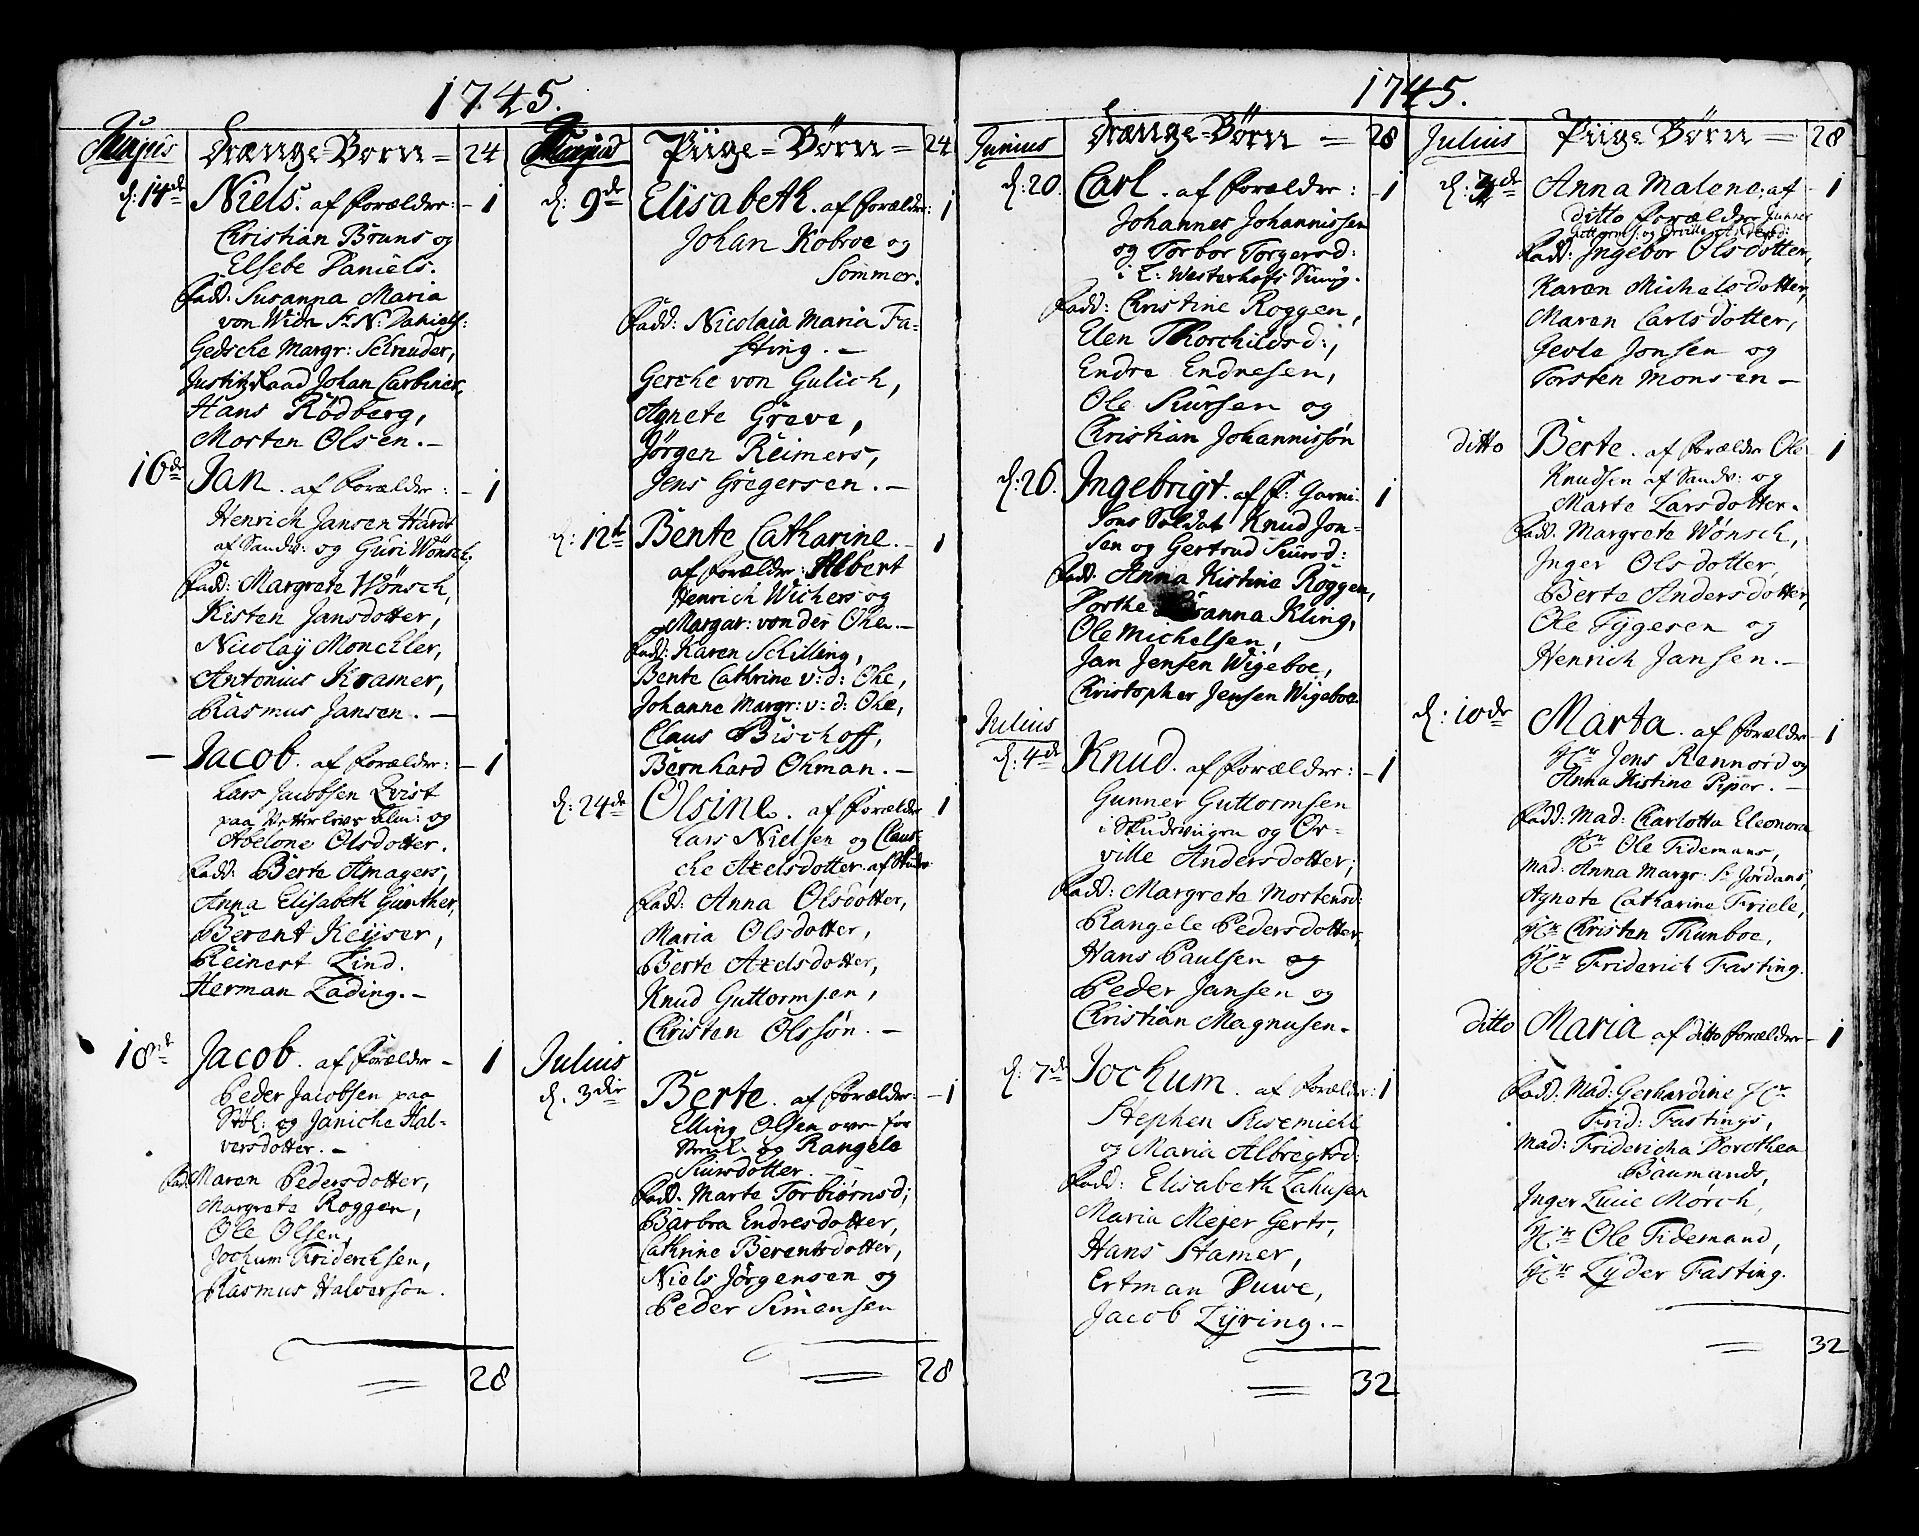 1745.
Drænge-Børn = 24
d: 14de Niels. af Forældre: - 1
Christian Bruns og
Elsebe Daniels.
Fadd: Susanna Maria
von Widn Sr N: Daniels:
Gedsche Margr: Schreuder,
Justitz Raad Johan Carbiner,
Hans Rödberg,
Morten Olsen. -
16de Jan. af Forældre: - 1
Henrich Jansen Hards
af Sandv: og Guri Wönsch,
Fadd: Margrete Wönsch,
Kisten Jansdotter,
Nicolaÿ Monchler,
Antonius Kramer,
Rasmus Jansen. -
- Jacob. af Forældre: - 1
Lars Jacobsen Qvist
paa Vetterlevs Alm: og
Abelone Olsdotter.
Fadd: Berte Amagers,
Anna Elisabeth Günther,
Berent Keÿser,
Reinert Lind.
Herman Lading. -
18de Jacob. af Forældre - 1
Peder Jacobsen paa
Stöl: og Janiche Hal-
versdotter. -
Fad: Maren Pedersdotter,
Margrete Roggen,
Ole Olsen,
Jochum Friderchsen,
Rasmus Halversøn.
28
Piige-Børn = 24
d: 9de Elisabeth. af Forældre: 1
Johan Kobroe og
Sommer.
Fadd: Nicolaia Maria Fa-
sting. -
Gerche von Gulich,
Agnete Greve,
Jørgen Reimers,
Jens Gregersen. -
d: 12t Bente Catharine. - 1
af Forældre: Albert
Henrich Wichers og
Margar: von der Ohe. -
Fadd: Karen Schilling,
Bente Cathrine v: d: Ohe,
Johanne Margr: v: d: Ohe,
Claus Bischoff,
Bernhard Ohman. -
d: 24de Olsine. af Forældre 1
Lars Nielsen og Claus-
che Axelsdotter. af
Fadd: Anna Olsdotter,
Maria Olsdotter,
Berte Axelsdotter,
Knud Guttormsen,
Christen Olssøn. -
Julius
d. 3die Berte. af Forældre: - 1
Elling Olsen over for
og Rangele
Siursdotter. -
Fadd. Marte Torbiørnsd;
Barbra Endresdotter,
Cathrine Berentsdotter,
Niels Jørgensen og
Peder Simensen
28
1745.
Junius Drænge-Børn = 28
d: 20. Carl. af Forældre: - 1
Johannes Johannissen
og Torbor Torgersd:
i L: Westerhofs Smug.
Fadd: Christine Roggen,
Elen Thorchildsd:,
Endre Endresen,
Ole Siursen og
Christian Johannissøn
d: 26. Ingebrigt. af F: Garni- 1
sons Soldat Knud Jon-
sen og Gertrud Siursd:
Fadd. Anna Kistine Roggen,
Dorthe Susanna Kling,
Ole Michelsen,
Jan Jensen Wigeboe,
Christopher Jensen Wigeboe
Julius
d: 4de Knud. af Forældre: - 1
Gunner Guttormsen
i Skudeviigen og Or-
ville Andersdotter;
Fadd: Margrete Mortensd:
Rangele Pedersdotter,
Hans Paulsen og
Peder Jansen og
Christian Magnusen.
d: 7de Jochum. af Forældre: 1
Stephen Susemiehl
og Maria Albregtsd:
Fadd: Elisabeth Lahusen
Maria Mejer Gerts,
Hans Stamer,
Ertman Duwe,
Jacob Lÿring. -
32
Julius Piige-Børn = 28
Anna Malene. af - 1
ditto Forældre Gunner
Guttorms: og Orville Andersd:
Fadd: Ingebor Olsdotter,
Karen Michelsdotter,
Maren Carlsdotter,
Jevle Jonsen og
Torsten Monsen -
ditto Berte. af Forældre Ole 1
Knudsen af Sandv: og
Marte Larsdotter.
Fadd: Margrete Wønsch,
Inger Olsdotter,
Berte Andersdotter,
Ole Tÿgesen og
Henrich Jansen. -
d: 10de Marta. af Forældre - 1
Hr Jens Rennord og
Anna Kistine Piper. -
Fadd: Mad: Charlotta Eleonora
Hr Ole Tidemans,
Mad: Anna Margr: Sr Jordans,
Agnete Catharine Friele,
Hr Christen Thunboe,
Hr Friderich Fasting.
ditto Maria af ditto Forældre - 1
Fadd: Mad: Gerhardine Hr
Frid: Fastings,
Mad: Fridericha Dorothea
Baumands,
Inger Lucie Morch,
Hr Ole Tidemand,
Hr Lyder Fasting.
32